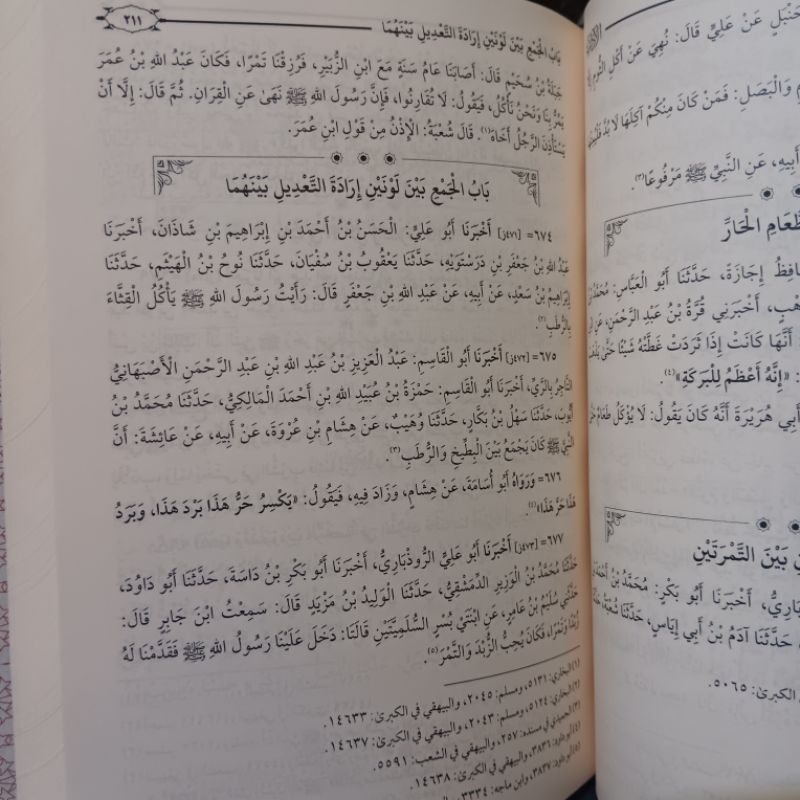 حَنْبَلٍ عَنْ عَلِيٍّ قَالَ: نُهِيَ عَنْ أَكْلِ الثُّومِ
وَالْبَصَلِ: فَمَنْ كَانَ مِنْكُمْ آكِلَهَا لَا بُدَّ
أَبِيهِ، عَنِ النَّبِيِّ ﷺ مَرْفُوعًا(٣).
الْحَارِّ
إِجَازَةً، حَدَّثَنَا أَبُو الْعَبَّاسِ:
أَخْبَرَنِي قُرَّةُ بْنُ عَبْدِ الرَّحْمَنِ، عَنِ
أَنَّهَا كَانَتْ إِذَا ثَرَدَتْ غَطَّتْهُ شَيْئًا حَتَّى
«إِنَّهُ أَعْظَمُ لِلْبَرَكَةِ»(٤).
أَبِي هُرَيْرَةَ أَنَّهُ كَانَ يَقُولُ: لَا يُؤْكَلُ طَعَامٌ
بَيْنَ التَّمْرَتَيْنِ
أَخْبَرَنَا أَبُو بَكْرٍ: مُحَمَّدُ بْنُ
حَدَّثَنَا آدَمُ بْنُ أَبِي إِيَاسٍ، حَدَّثَنَا شُعْبَةُ،
الكبرىٰ: ٥٠٦٥.
بَابُ الْجَمْعِ بَيْنَ لَوْنَيْنِ إِرَادَةَ التَّعْدِيلِ بَيْنَهُمَا
٢١١
جَبَلَةُ بْنُ سُحَيْمٍ قَالَ: أَصَابَنَا عَامُ سَنَةٍ مَعَ ابْنِ الزُّبَيْرِ، فَرُزِقْنَا تَمْرًا، فَكَانَ عَبْدُ اللهِ بْنُ عُمَرَ
يَمُرُّ بِنَا وَنَحْنُ نَأْكُلُ، فَيَقُولُ: لَا تُقَارِنُوا، فَإِنَّ رَسُولَ اللهِ ﷺ نَهَىٰ عَنِ الْقِرَانِ. ثُمَّ قَالَ: إِلَّا أَنْ
يَسْتَأْذِنَ الرَّجُلُ أَخَاهُ(١). قَالَ شُعْبَةُ: الْإِذْنُ مِنْ قَوْلِ ابْنِ عُمَرَ.
بَابُ الْجَمْعِ بَيْنَ لَوْنَيْنِ إِرَادَةَ التَّعْدِيلِ بَيْنَهُمَا
٦٧٤= [٤٧١ز] أَخْبَرَنَا أَبُو عَلِيٍّ: الْحَسَنُ بْنُ أَحْمَدَ بْنِ إِبْرَاهِيمَ بْنِ شَاذَانَ، أَخْبَرَنَا
عَبْدُ اللهِ بْنُ جَعْفَرِ بْنِ دَرَسْتَوَيْهِ، حَدَّثَنَا يَعْقُوبُ بْنُ سُفْيَانَ، حَدَّثَنَا نُوحُ بْنُ الْهَيْثَمِ، حَدَّثَنَا
إِبْرَاهِيمُ بْنُ سَعْدٍ، عَنْ أَبِيهِ، عَنْ عَبْدِ اللهِ بْنِ جَعْفَرٍ قَالَ: رَأَيْتُ رَسُولَ اللهِ ﷺ يَأْكُلُ الْقِثَّاءَ
بِالرُّطَبِ(٢).
٦٧٥= [٤٧٢ز] أَخْبَرَنَا أَبُو الْقَاسِمِ: عَبْدُ الْعَزِيزِ بْنُ عَبْدِ اللهِ بْنِ عَبْدِ الرَّحْمَنِ الْأَصْبَهَانِيُّ
التَّاجِرُ بِالرَّيِّ، أَخْبَرَنَا أَبُو الْقَاسِمِ: حَمْزَةُ بْنُ عُبَيْدِ اللهِ بْنِ أَحْمَدَ الْمَالِكِيُّ، حَدَّثَنَا مُحَمَّدُ بْنُ
أَيُّوبَ، حَدَّثَنَا سَهْلُ بْنُ بَكَّارٍ، حَدَّثَنَا وُهَيْبٌ، عَنْ هِشَامِ بْنِ عُرْوَةَ، عَنْ أَبِيهِ، عَنْ عَائِشَةَ: أَنَّ
النَّبِيَّ ﷺ كَانَ يَجْمَعُ بَيْنَ الْبِطِّيخِ وَالرُّطَبِ(٣).
٦٧٦= وَرَوَاهُ أَبُو أُسَامَةَ، عَنْ هِشَامٍ، وَزَادَ فِيهِ، فَيَقُولُ: «يَكْسِرُ حَرُّ هَذَا بَرْدَ هَذَا، وَبَرْدُ
هَذَا حَرَّ هَذَا»(٤).
٦٧٧= [٤٧٣ز] أَخْبَرَنَا أَبُو عَلِيٍّ الرُّوذْبَارِيُّ، أَخْبَرَنَا أَبُو بَكْرِ بْنُ دَاسَةَ، حَدَّثَنَا أَبُو دَاوُدَ،
حَدَّثَنَا مُحَمَّدُ بْنُ الْوَزِيرِ الدِّمَشْقِيُّ، حَدَّثَنَا الْوَلِيدُ بْنُ مَزْيَدٍ قَالَ: سَمِعْتُ ابْنَ جَابِرٍ قَالَ:
حَدَّثَنِي سُلَيْمُ بْنُ عَامِرٍ، عَنِ ابْنَيْ بُسْرٍ السُّلَمِيَّيْنِ قَالَتَا: دَخَلَ عَلَيْنَا رَسُولُ اللهِ ﷺ فَقَدَّمْنَا لَهُ
زُبْدًا وَتَمْرًا، فَكَانَ يُحِبُّ الزُّبْدَ وَالتَّمْرَ(٥).
(١) البخاري: ٥١٣١، ومسلم: ٢٠٤٥، والبيهقي في الكبرىٰ: ١٤٦٣٣.
(٢) البخاري: ٥١٢٤، ومسلم: ٢٠٤٣، والبيهقي في الكبرىٰ: ١٤٦٣٧.
(٣) الحميدي في مسنده: ٢٥٧، والبيهقي في الشعب: ٥٥٩١.
(٤) أبو داود: ٣٨٣٦، والبيهقي في الكبرىٰ: ١٤٦٣٨.
(٥) أبو داود: ٣٨٣٧، وابن ماجه: ٣٣٣٤